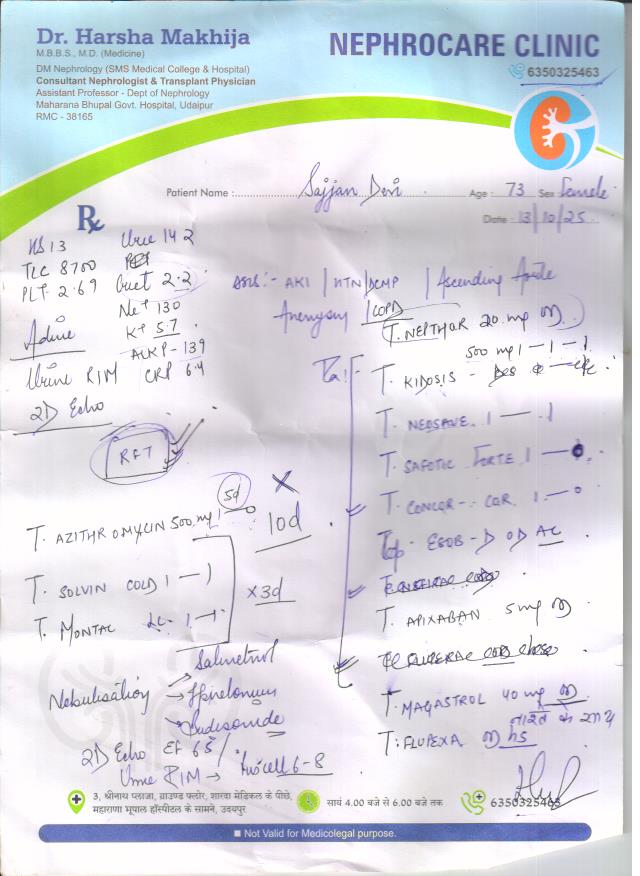 Dr. Harsha Makhija
M.B.B.S., M.D. (Medicine)
DM Nephrology (SMS Medical College & Hospital)
Consultant Nephrologist & Transplant Physician
Assistant Professor - Dept of Nephrology
Maharana Bhupal Govt. Hospital, Udaipur
RMC - 38165
NEPHROCARE CLINIC
6350325463
Patient Name : Sajjan Devi Age : 73 Sex Female
Date 13/10/25
Rx
13 Urea 142
TLC 8700
PLT 2.69 Creat 2.2
Na+ 130
K+ 5.7
ALKP - 139
Urine R/M CRP 6.4
2D Echo
RFT
AKI / HTN / DCMP / Ascending
COPD
T. 20 mg
500 mg 1 - 1 - 1
T. KIDOSIS
T. NEOSAVE 1 — 1
T. FORTE 1 — 0
T. CONCOR - COR 1 — 0
ESOB - D OD AC
T. APIXABAN 5 mg
T. MAGASTROL 40 mg
नाश्ते के साथ
T. FLUPEXA HS
5d
T. AZITHROMYCIN 500 mg 10d
T. SOLVIN COLD 1 — 1
x 3d
T. MONTAC LC
Nebulisation
Budesonide
2D Echo EF 65%
Urine R/M → Pus cell 6-8
3, श्रीनाथ प्लाजा, ग्राउण्ड फ्लोर, शारदा मेडिकल के पीछे,
महाराणा भूपाल हॉस्पीटल के सामने, उदयपुर
सायं 4.00 बजे से 6.00 बजे तक
6350325463
Not Valid for Medicolegal purpose.